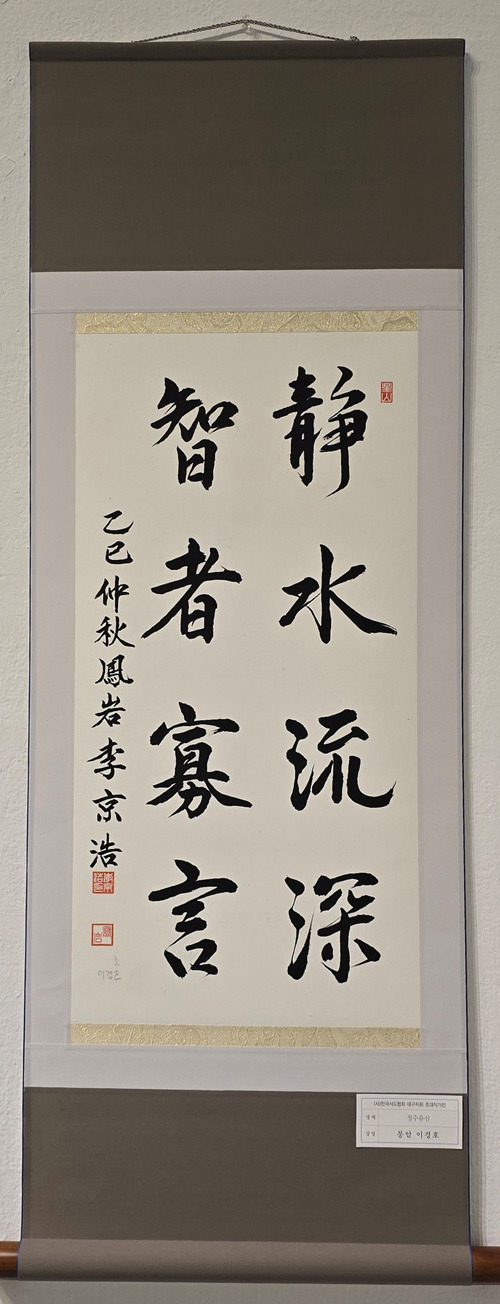 靜水流深
智者寡言
乙巳仲秋鳳岩李京浩
(사)한국서도협회 대구지회 초대작가전
명제 정수유심
성명 봉암 이경호